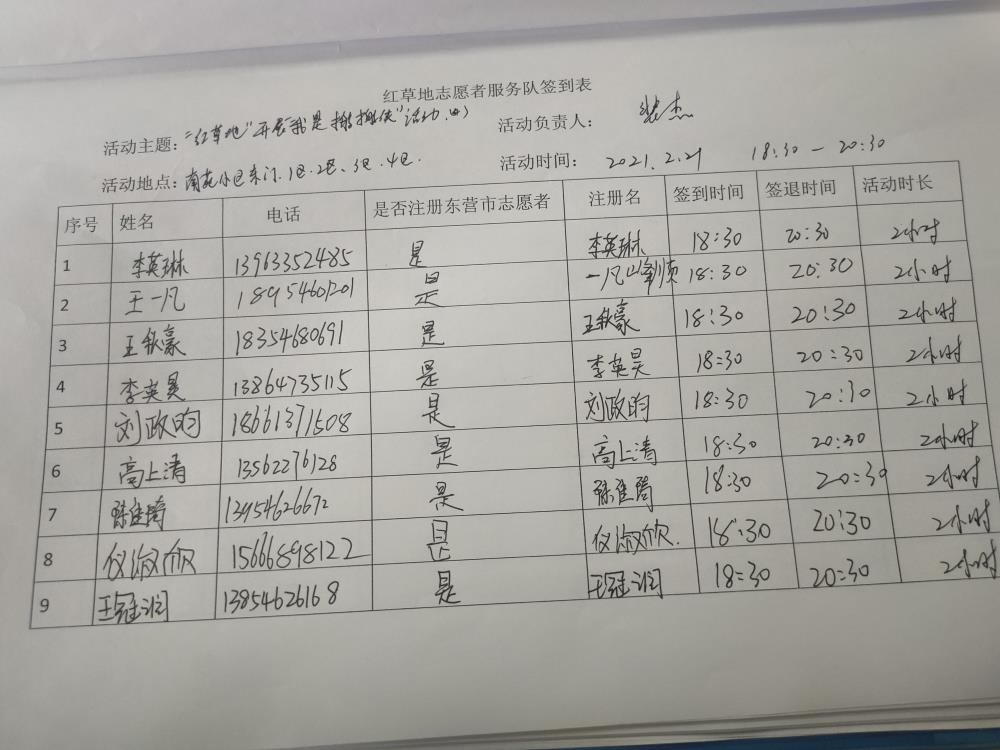 红草地志愿者服务队签到表
活动主题："红草地"开展"我是 活动(四) 活动负责人：裴杰
活动地点：南苑小区东门.1区.2区、3区.4区. 活动时间：2021.2.21 18:30—20:30
序号 姓名 电话 是否注册东营市志愿者 注册名 签到时间 签退时间 活动时长
1 李英琳 13963352485 是 李英琳 18:30 20:30 2小时
2 王一凡 18954601201 是 一凡 18:30 20:30 2小时
3 王铁豪 18354680691 是 王铁豪 18:30 20:30 2小时
4 李英昊 13864735115 是 李英昊 18:30 20:30 2小时
5 刘政昀 18661371508 是 刘政昀 18:30 20:30 2小时
6 高上清 13562276128 是 高上清 18:30 20:30 2小时
7 13954626672 是 18:30 20:30 2小时
8 仪淑欣 15666898122 是 仪淑欣. 18:30 20:30 2小时
9 王冠润 13854626168 是 王冠润 18:30 20:30 2小时